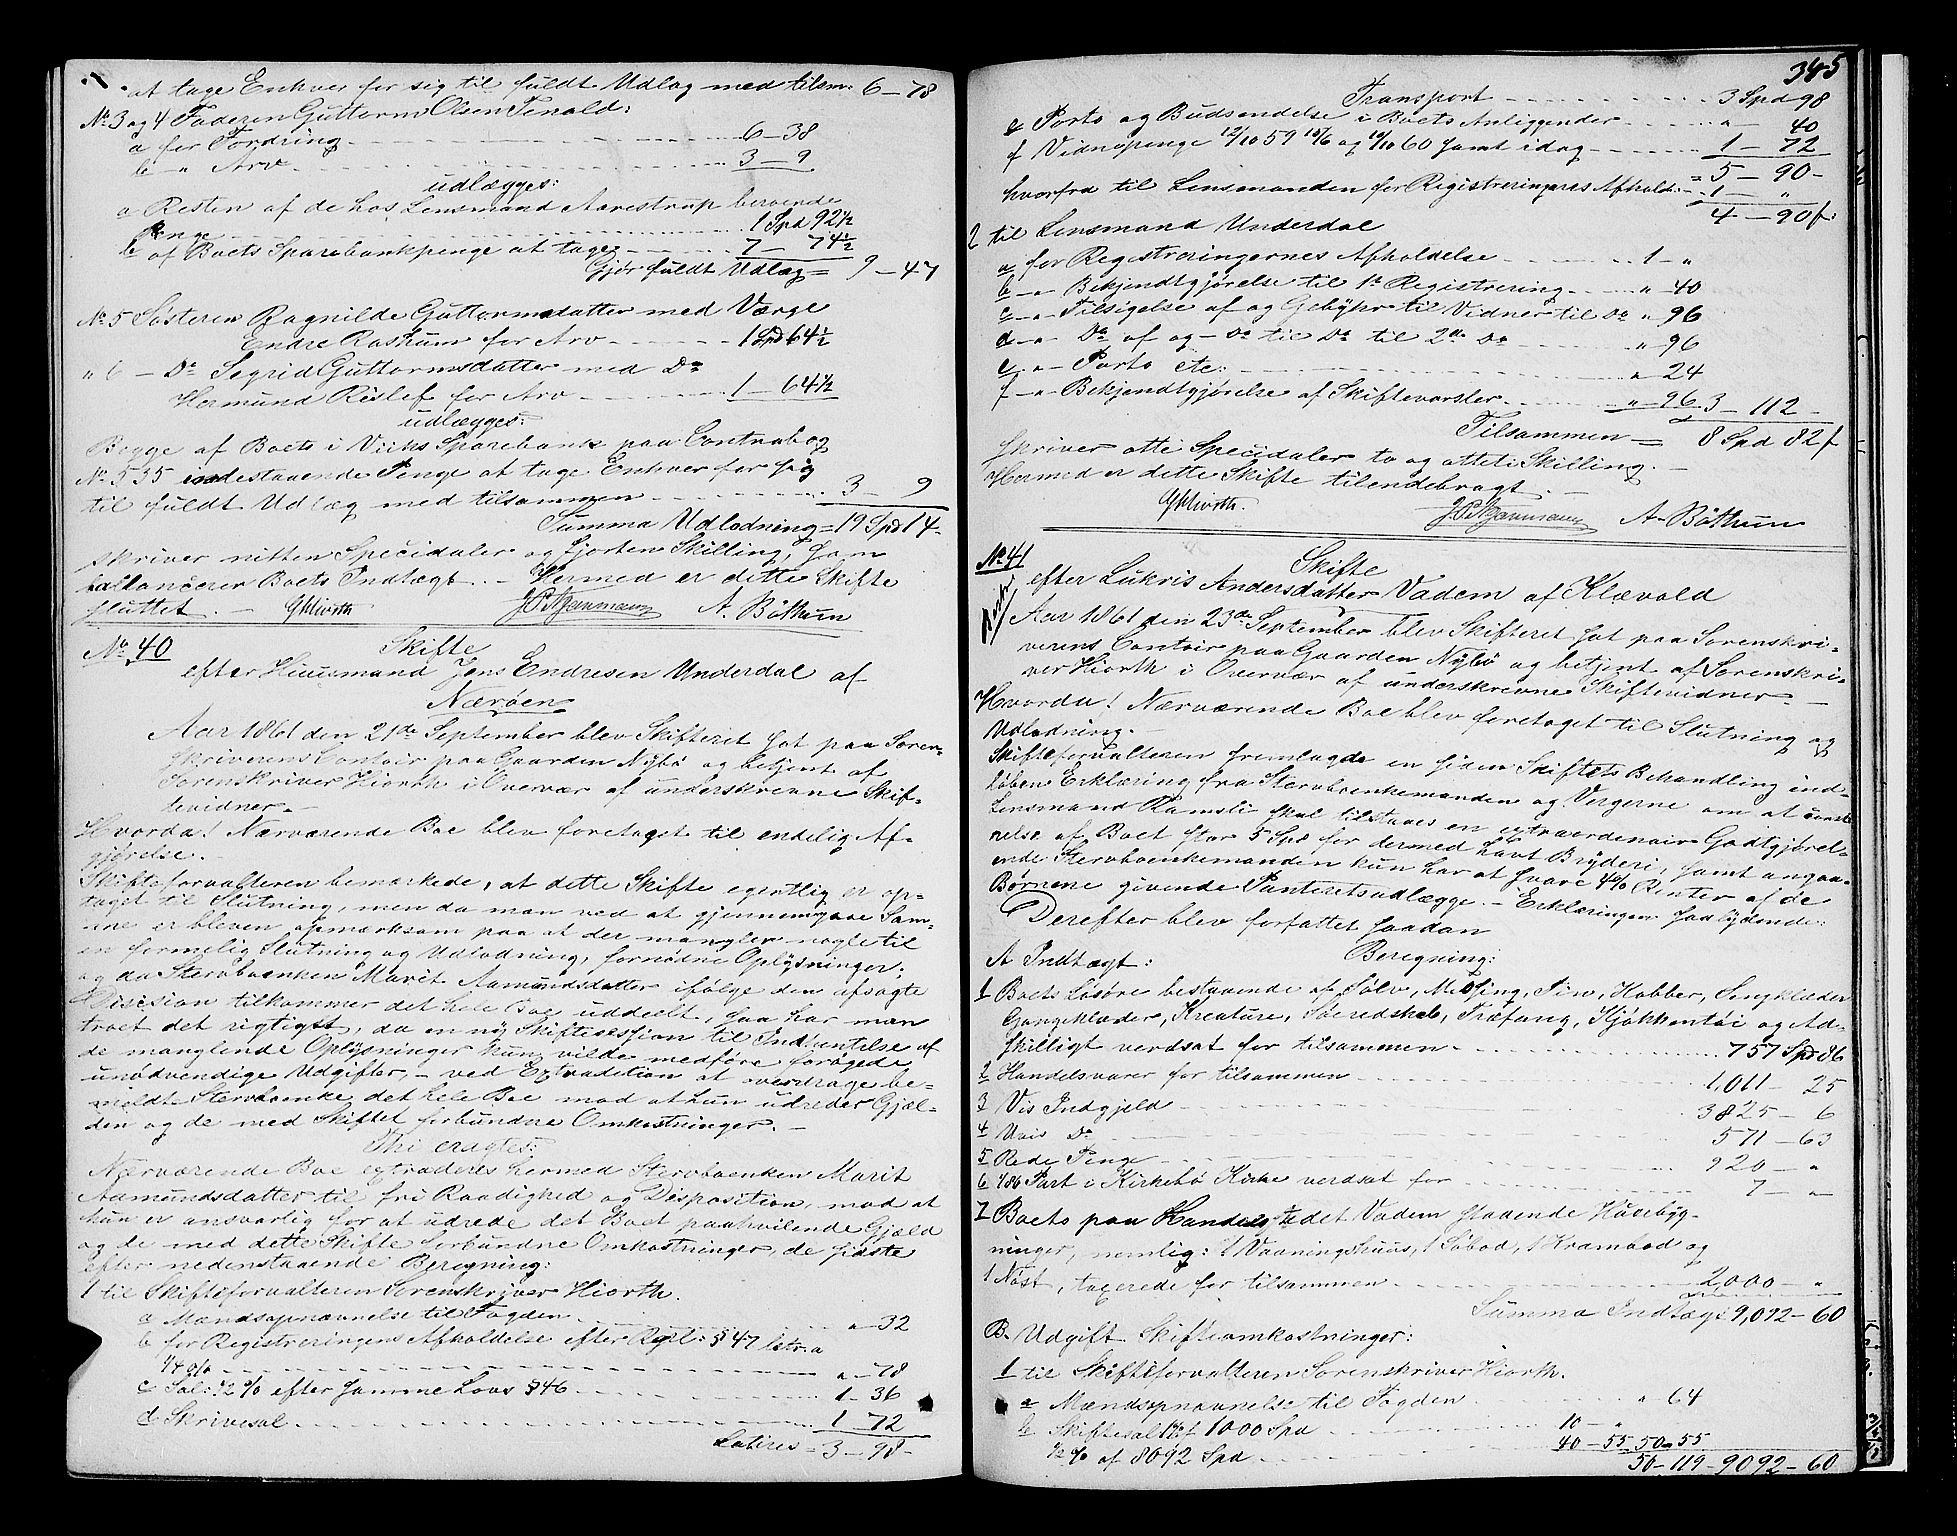 at tage Enhver for sig til fuldt Udlæg med tilsm: 6 – 78
No 3 og 4 Faderen Guttorm Olsen Tenold:
a for Fordring 6 – 38
b – " Arv 3 – 9
udlægges:
a Resten af de hos Lensmand Aarestrup beroende
Penge 1 Spd 92 1/2
b af Boets Sparebankpenge at tage 7 – 74 1/2
Gjør fuldt Udlæg = 9 – 47
No 5 Søsteren Ragnilde Guttormsdatter med Værge
Endre Rashum for Arv 1 Spd 64 1/2
" 6 – Do Segrid Guttormsdatter med Do
Hermund Rislef for Arv 1 – 64 1/2
udlægges:
Begge af Boets i Viks Sparebank paa Contrabog
No 535 indestaaende Penge at tage Enhver for sig
til fuldt Udlæg med tilsammen 3 – 9
Summa Udlodning = 19 Spd 14
skriver nitten Specidaler og fjorten Skilling, som
ballancerer Boets Indtægt. – Hermed er dette Skifte
sluttet. – GHiorth A. Bøthun
No 40 Skifte
efter Huusmand Jens Endresen Underdal af
Nærøen
Aar 1861 den 21de September blev Skifteret sat paa Soren-
skriverens Contoir paa Gaarden Nybø og betjent af
Sorenskriver Hiorth i Overvær af underskrevne Skif-
tevidner. –
Hvorda! Nærværende Boe blev foretaget til endelig Af-
gjørelse. –
Skifteforvalteren bemærkede, at dette Skifte egentlig er op-
taget til Slutning, men da man ved at gjennemgaae Sam-
me er bleven opmærksom paa at der mangler nogle til
en formelig Slutning og Udlodning, fornødne Oplysninger;
og da Stervboenken Marit Aamundsdatter ifølge den afsagte
Disision tilkommer det hele Boe uddeelt, saa har man
troet det rigtigst, da en ny Skiftesession til Indhentelse af
de manglende Oplysninger kun vilde medføre forøgede
unødvendige Udgifter, – ved Extradition at overdrage be-
meldt Stervboenke det hele Boe mod at hun udreder Gjæl-
den og de med Skiftet forbundne Omkostninger. –
Thi eragtes:
Nærværende Boe extraderes hermed Stervboenken Marit
Aamundsdatter til fri Raadighed og Disposition, mod at
hun er ansvarlig for at udrede det Boet paahvilende Gjæld
og de med dette Skifte forbundne Omkostninger, de sidste
efter nedenstaaende Beregning:
1 til Skifteforvalteren Sorenskriver Hiorth.
a Mandsopnævnelse til Fogden " – 32
b for Registreringens Afholdelse efter Regl: § 47 letr. a
1/4 o/o " – 78
c Sal: 1/2 o/o efter samme Lovs § 46 1 – 36
d Skrivesal 1 – 72
Lateres = 3 – 98 –
345
Transport 3 Spd 98
e Porto og Budsendelse i Boets Anliggender " – 40
f Vidnepenge 12/10 59 15/6 og 10/10 60 samt idag 1 – 72
= 5 – 90 –
hvorfra til Lensmanden for Registreringernes Afhold: 1 – "
4 – 90 f:
2 til Lensmand Underdal
a for Registreringernes Afholdelse 1 – "
b – " Bekjendtgjørelse til 1e Registrering " – 40
c – " Tilsigelse af og Gebyhr til Vidner til Do " 96
d – " Do af og – Do til Do til 2de Do " – 96
e – " Porto etc: " – 24
f – " Bekjendtgjørelse af Skiftevarsler " – 96 3 – 112 –
Tilsammen = 8 Spd 82 f
skriver otte Specidaler to og otteti Skilling. –
Hermed er dette Skifte tilendebragt. –
GHiorth. A. Bøthun
No 41 Skifte
efter Lukris Andersdatter Vadem af Klævold
Aar 1861 den 23de September blev Skifteret sat paa Sorenskri-
verens Contoir paa Gaarden Nybø og betjent af Sorenskri-
ver Hiorth i Overvær af underskrevne Skiftevidner –
Hvorda! Nærværende Boe blev foretaget til Slutning og
Udlodning. –
Skifteforvalteren fremlagde en siden Skiftets Behandling ind-
løben Erklæring fra Stervboenkemanden og Vergerne om at
Lensmand Ramsli skal tilstaaes en extraordenair Godtgjørel-
nelse af Boet stor 5 Spd for dermed havt Bryderi, samt angaa-
ende Stervboenkemanden kun har at svare 4 o/o Renter af de
Børnene givende Panteretsudlægge. – Erklæringen saalydende:
Derefter blev forfattet saadan
Beregning:
A Indtægt:
1 Boets Løsøre bestaaende af Sølv, Mesing, Tin, Kobber, Sengklæder
Gangklæder, Kreature, Søeredskab, Træfang, Kjøkkentøi og Ad-
skilligt verdsat for tilsammen 757 Spd 86
2 Handelsvarer for tilsammen 1,011 – 25
3 Vis Indgjeld 3825 – 6
4 Uvis Do 571 – 63
5 Rede Penge 920 – "
6 1/86 Part i Kirkebø Kirke verdsat for 7 – "
7 Boets paa Handelsstedet Vadem staaende Huusbyg-
ninger, nemlig: 1 Vaaningshuus, 1 Søbod, 1 Krambod og
1 Nøst, taxerede for tilsammen 2,000 – "
Summa Indtægt 9,092 – 60
B. Udgift Skifteomkostninger:
1 til Skifteforvalteren Sorenskriver Hiorth.
a Mandsopnævnelse til Fogden " 64
b Skiftesal 1 o/o af 1000 Spd 10 – "
1/2 o/o af 8092 Spd 40 – 55 50 " 55
50 – 119 – 9092 – 60